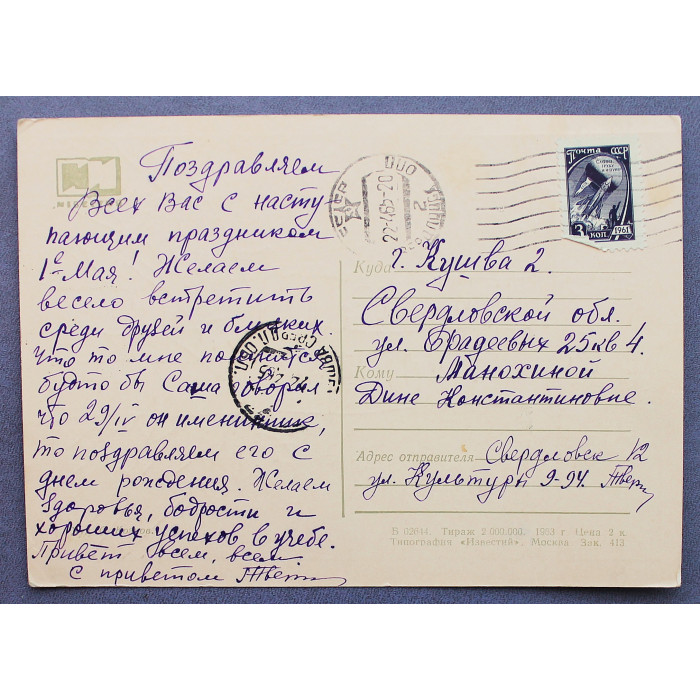 Поздравляем
Всех Вас с насту
пающим праздником
1е Мая! Желаем
весело встретить
среди друзей и близких.
Что то мне помнится
будто бы Саша говорил
что 29/IV он именинник,
то поздравляем его с
днем рождения. Желаем
здоровья, бодрости и
хороших успехов в учебе.
Привет всем, всем.
с приветом
Почта СССР
3 коп. 1961
СССР
22-465-20
Куда г. Кушва 2.
Свердловской обл.
ул. Фрадеевых 25 кв 4.
Кому Манохиной
Дине Константиновне.
Адрес отправителя Свердловск 12
ул. Культуры 9-94.
Б 02844. Тираж 2 000 000. 1963 г. Цена 2 к.
Типография «Известий», Москва Зак. 413